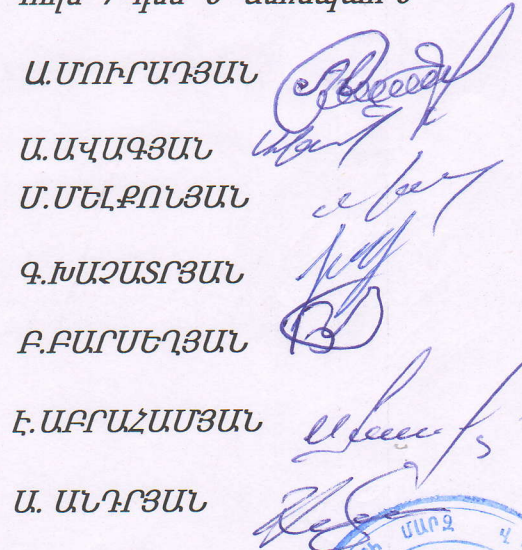 Ա.ՄՈՒՐԱԴՅԱՆ
Ա.ԱՎԱԳՅԱՆ
Մ.ՄԵԼՔՈՆՅԱՆ
Գ.ԽԱՉԱՏՐՅԱՆ
Բ.ԲԱՐՍԵՂՅԱՆ
Է.ԱԲՐԱՀԱՄՅԱՆ
Ա. ԱՆԴՐՅԱՆ
ՄԱՐԶ